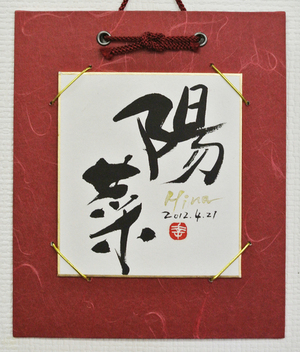 陽
菜
Hina
2012.4.21